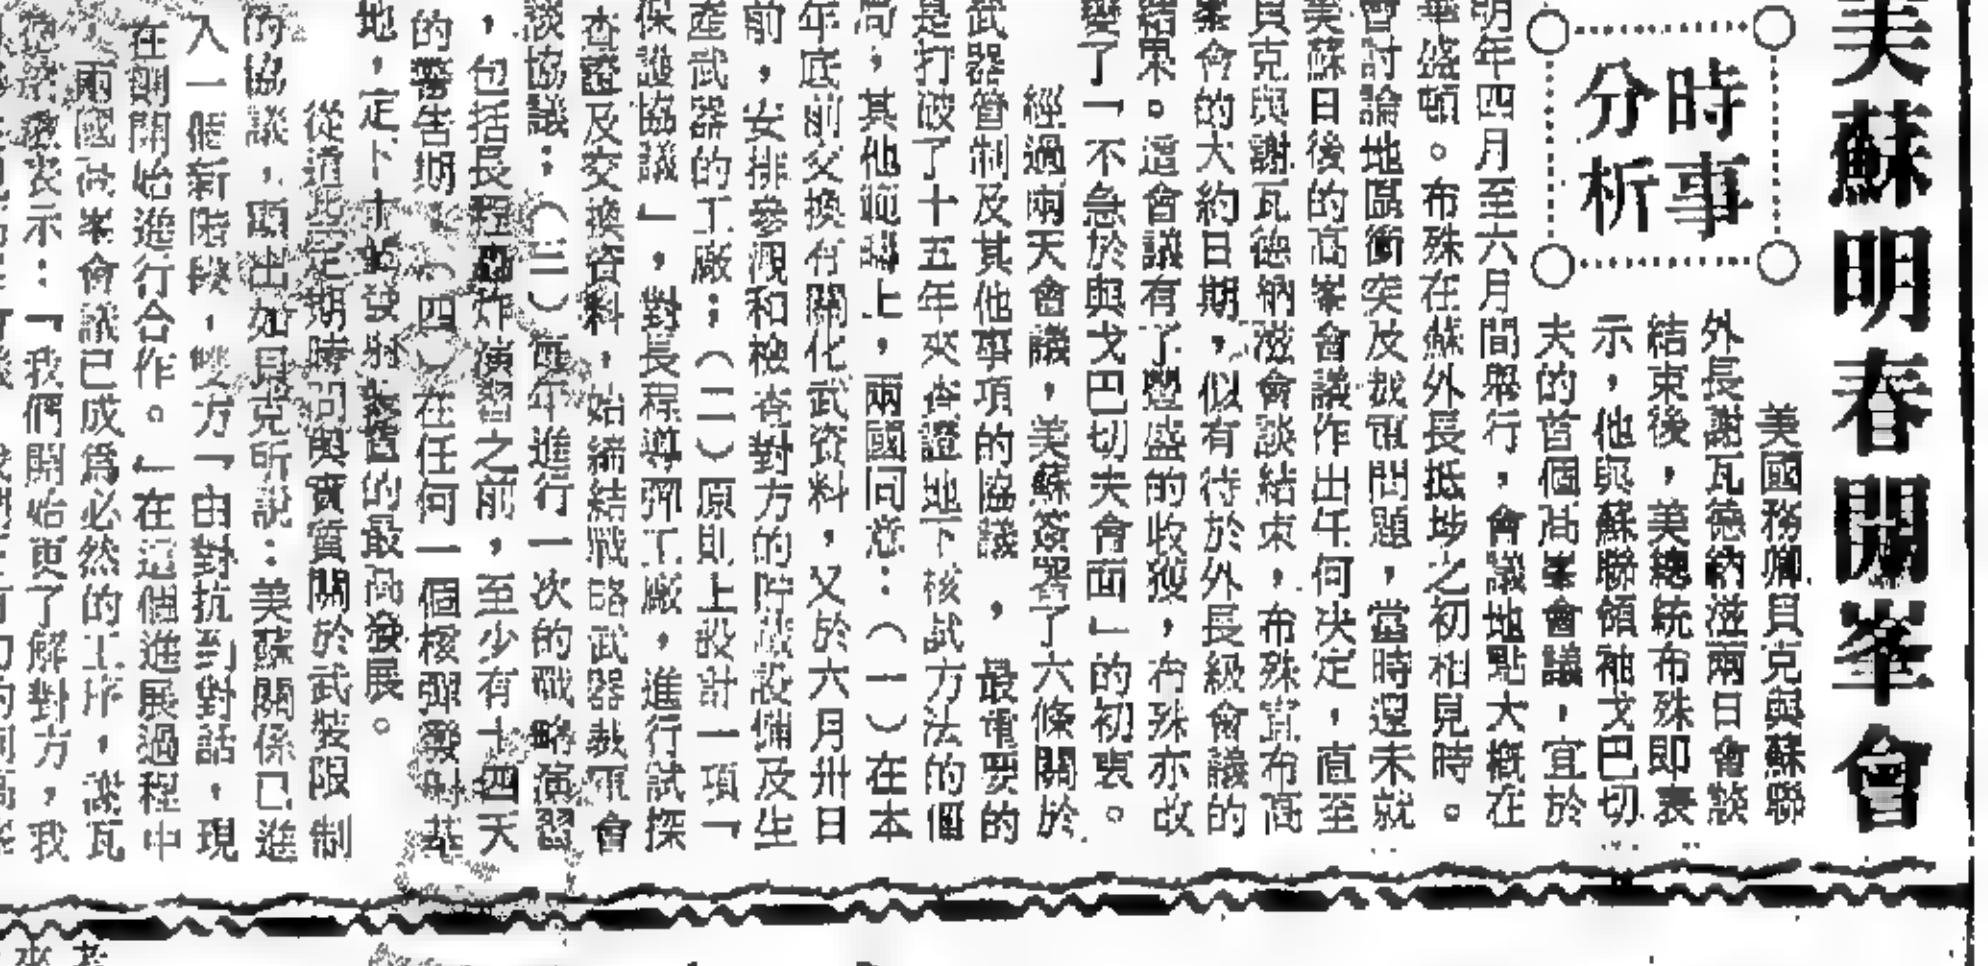 美蘇明春開峯會
時事
分析
美國務卿貝克與蘇聯
外長謝瓦德納滋兩日會談
結束後，美總統布殊即表
示，他與蘇聯領袖戈巴切
夫的首個高峯會議，宜於
明年四月至六月間舉行，會議地點大槪在
華盛頓。布殊在蘇外長抵埗之初相見時。
會討論地區衝突及裁軍問題，當時還未就
美蘇日後的高峯會議作出任何决定，直至
貝克與謝瓦德納滋會談結束，布殊宣布高
峯會的大約日期，似有待於外長級會議的
結果。這會議有了豐盛的收穫，布殊亦改
變了「不急於與戈巴切夫會面」的初衷。
經過兩天會議，美蘇簽署了六條關於
武器管制及其他事項的協議，最重要的
是打破了十五年來查證地下核試方法的僵
局，其他範疇上，兩國同意：（一）在本
年底前交換有關化武資料，又於六月卅日
前，安排參觀和檢查對方的貯藏設備及生
產武器的工廠；（二）原則上設計一項「
保護協議」，對長程導彈工廠，進行試探
查證及交換資料，始締結戰略武器裁軍會
談協議；（三）每年進行一次的戰略演習
，包括長程轟炸演習之前，至少有十四天
的警告期；（四）在任何一個核彈發射基
地，定下 發射裝置的最高發展。
從這些定期時間與實質關於武裝限制
的協議，顯出如貝克所說：美蘇關係已進
入一個新階段，雙方「由對抗到對話，現
在則開始進行合作。」在這個進展過程中
，兩國高峯會議已成爲必然的工序，謝瓦
表示：「我們開始更了解對方，我